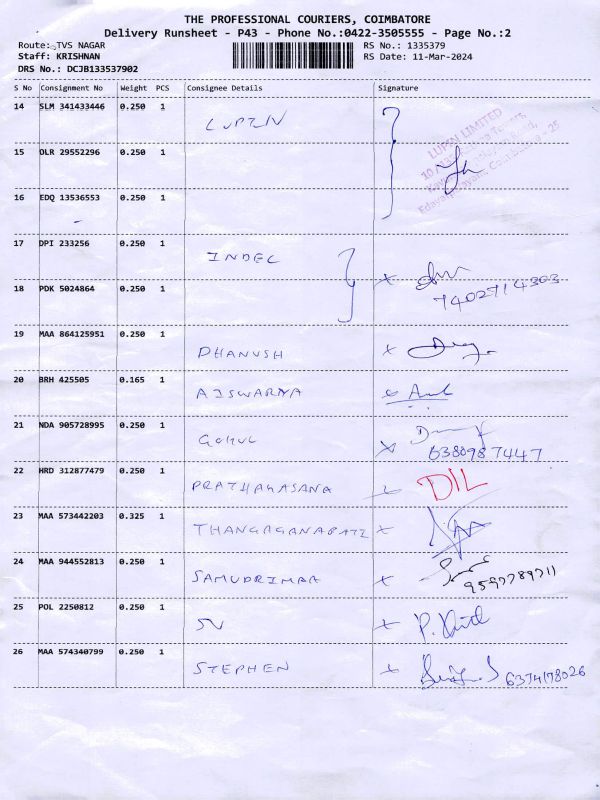 THE PROFESSIONAL COURIERS, COIMBATORE
Delivery Runsheet - P43 - Phone No.:0422-3505555 - Page No.:2
Route: TVS NAGAR
RS No.: 1335379
Staff: KRISHNAN
RS Date: 11-Mar-2024
DRS No.: DCJB133537902
S No Consignment No Weight PCS Consignee Details Signature
14 SLM 341433446 0.250 1 LUPIN
LUPIN LIMITED
15 DLR 29552296 0.250 1
16 EDQ 13536553 0.250 1
17 DPI 233256 0.250 1 INDEL
18 PDK 5024864 0.250 1 7402714303
19 MAA 864125951 0.250 1 DHANUSH
20 BRH 425505 0.165 1 AISWARYA
21 NDA 905728995 0.250 1 GOKUL
6380987447
22 HRD 312877479 0.250 1 PRATHAGASANA DIL
23 MAA 573442203 0.325 1 THANGAGANAPATI
24 MAA 944552813 0.250 1 SAMUDRIMAA
9597789711
25 POL 2250812 0.250 1 SV
26 MAA 574340799 0.250 1 STEPHEN 6374178026